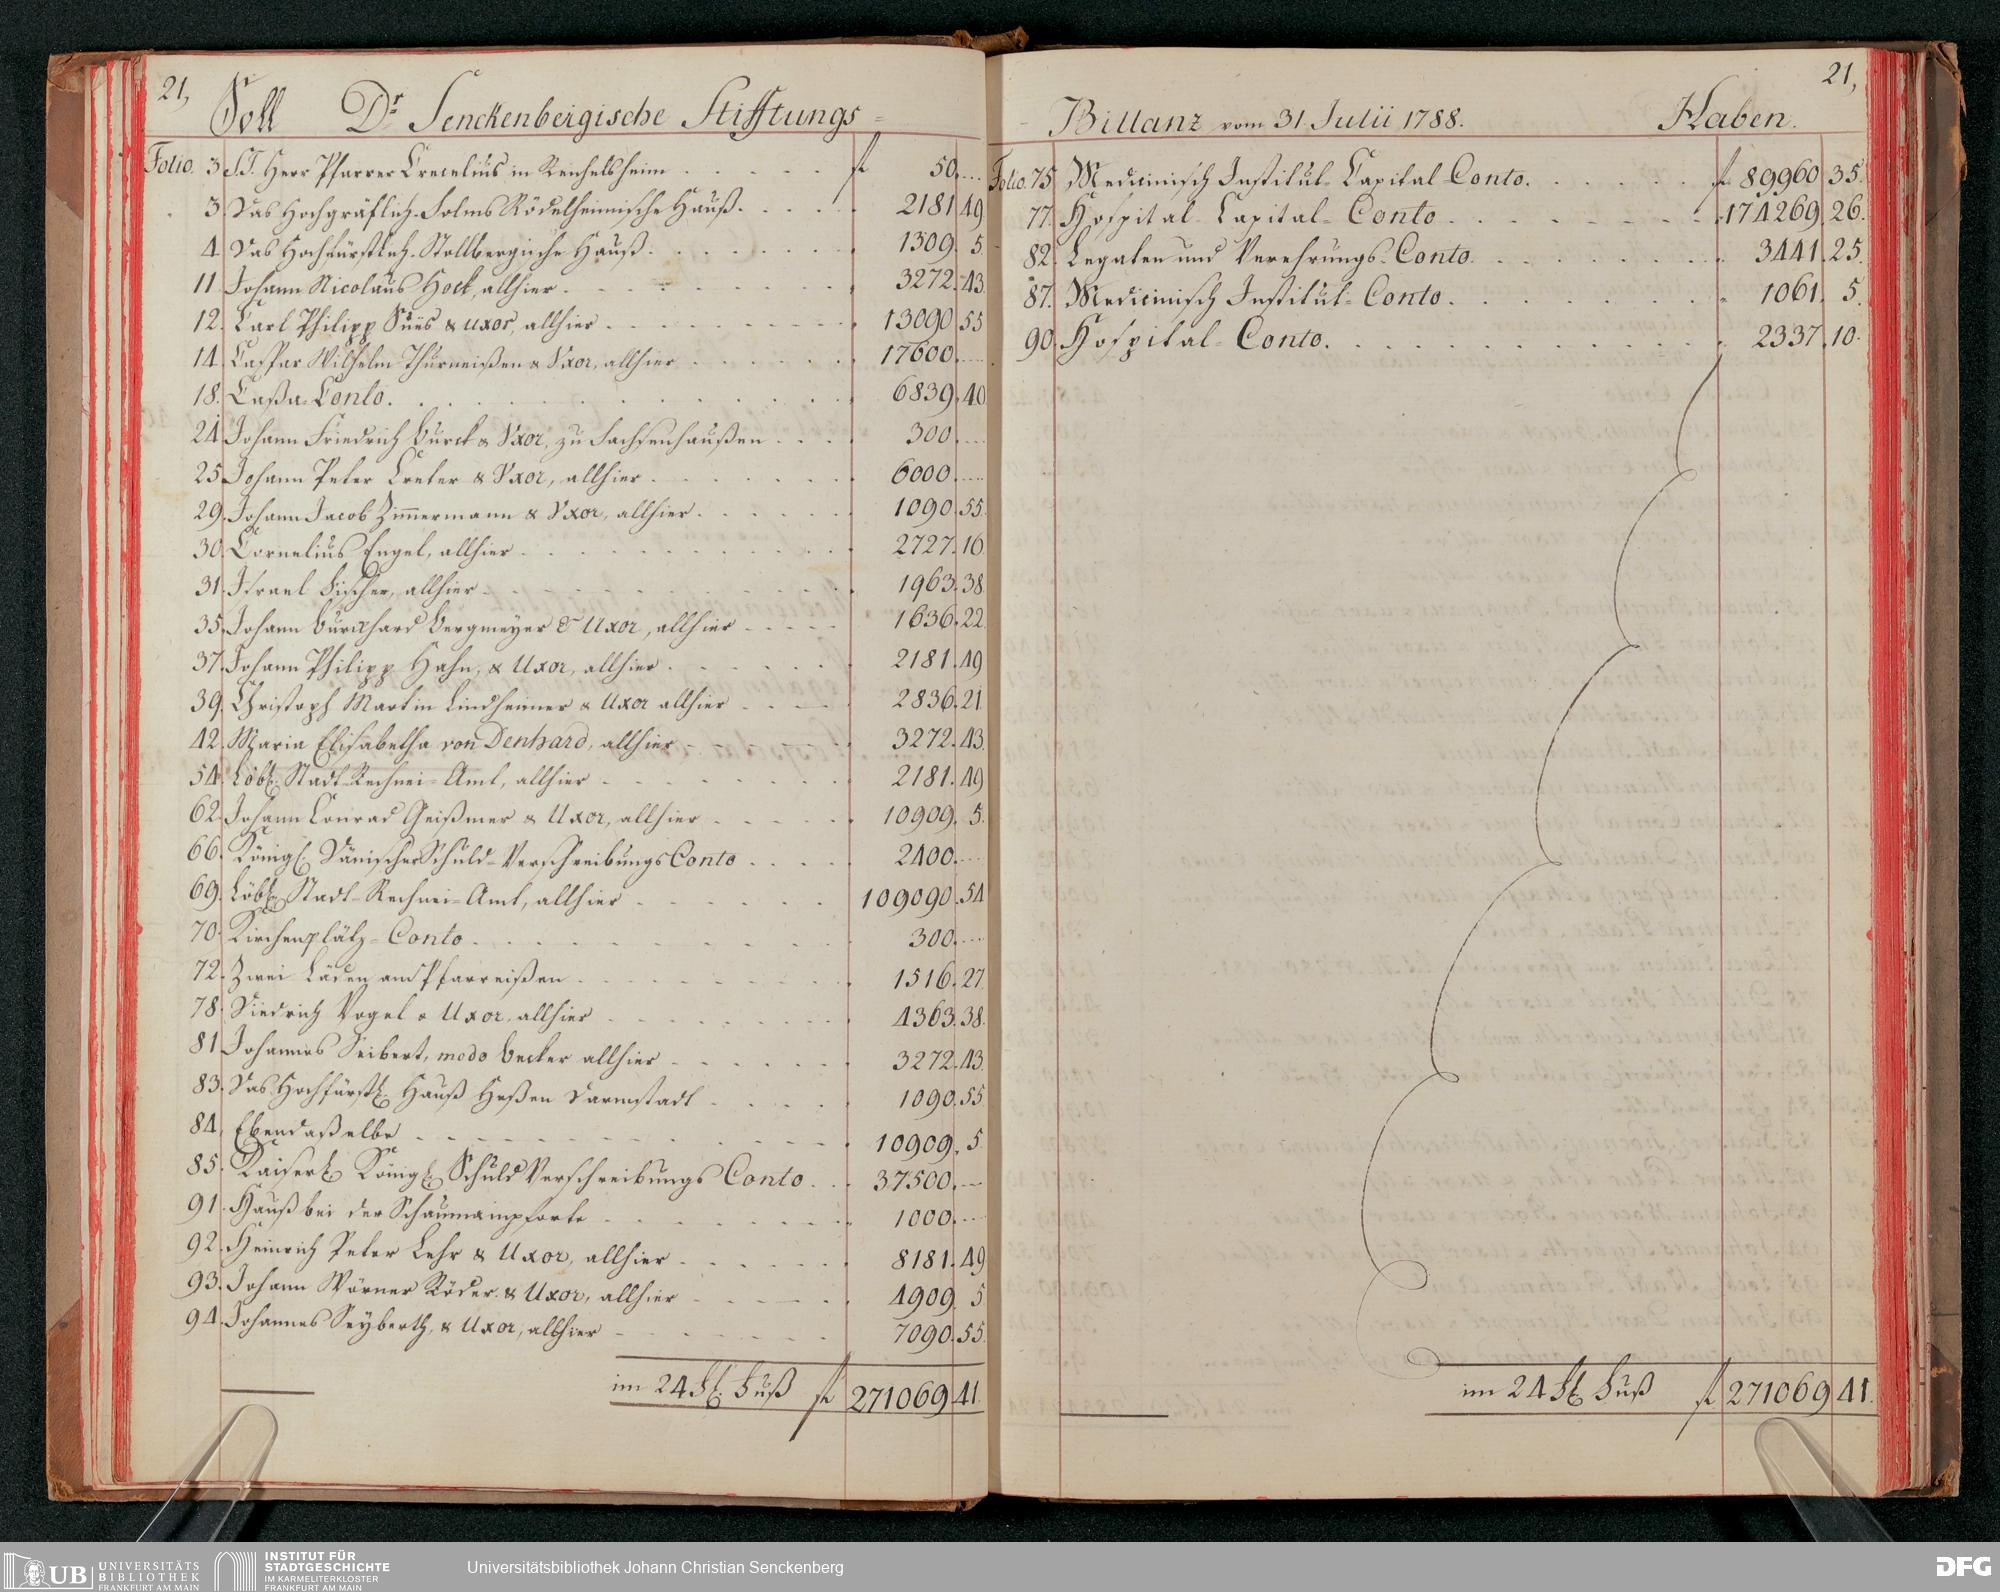 21,
Soll Dr. Senckenbergische Stifftungs-
Folio. 3 S.T. Herr Pfarrer Crecelius in Reichelsheim fl 50. ...
3 Das Hochgräflich-Solms Rödelheimische Hauß. 2181. 49
4 Das Hochfürstlich-Stollbergische Hauß. 1309. 5
11. Johann Nicolaus Hock, allhier 3272. 43
12. Carl Philipp Sües & uxor, allhier 13090. 55
14. Caspar Wilhelm Thurneißen & Uxor, allhier 17600. ...
18. Cassa-Conto. 6839. 40
24. Johann Friedrich Burck & Uxor, zu Sachsenhaußen 300. ...
25. Johann Peter Creter & Uxor, allhier 6000. ...
29. Johann Jacob Zimmermann & Uxor, allhier 1090. 55.
30. Cornelius Engel, allhier 2727. 16
31. Israel Fischer, allhier 1963. 38
35. Johann Burckhard Bergmeyer & Uxor, allhier 1636. 22
37. Johann Philipp Hahn, & Uxor, allhier 2181. 49
39. Christoph Martin Lindheimer & Uxor allhier 2836. 21
42. Maria Elisabetha von Denhard, allhier 3272. 43.
54. Löbl. Stadt-Rechnei-Amt, allhier 2181. 49
62. Johann Conrad Geißmer & Uxor, allhier 10909. 5.
66. Königl. Dänischer Schuld-Verschreibungs Conto 2400. ...
69. Löbl. Stadt-Rechnei-Amt, allhier 109090. 54
70. Kirchenplätz-Conto 300. ...
72. Zwei Läden am Pfarreißen 1516. 27.
78. Diedrich Vogel & Uxor, allhier 4363. 38.
81. Johannes Seibert, modo Becker allhier 3272. 43.
83. Das Hochfürstl. Hauß Heßen Darmstadt 1090. 55
84. Ebendaßelbe 10909. 5
85. Kaiserl. Königl. Schuld Verschreibungs Conto 37500. ...
91. Hauß bei der Schaumainpforte 1000. ...
92. Heinrich Peter Lehr & Uxor, allhier 8181. 49
93. Johann Wörner Röder & Uxor, allhier 4909. 5
94. Johannes Seyberth, & Uxor, allhier 7090. 55.
im 24 fl. Fuß fl 271069 41.
21,
- Billanz vom 31 Julii 1788. Haben.
Folio. 75 Medicinisch Institut-Capital Conto. fl 89960 35.
77. Hospital-Capital-Conto 174269. 26.
82. Legaten und Verehrungs-Conto. 3441. 25.
87. Medicinisch Institut-Conto. 1061. 5.
90. Hospital-Conto. 2337. 10.
im 24 fl. Fuß fl 271069 41.
UB UNIVERSITÄTS
BIBLIOTHEK
FRANKFURT AM MAIN
INSTITUT FÜR
STADTGESCHICHTE
IM KARMELITERKLOSTER
FRANKFURT AM MAIN
Universitätsbibliothek Johann Christian Senckenberg
DFG